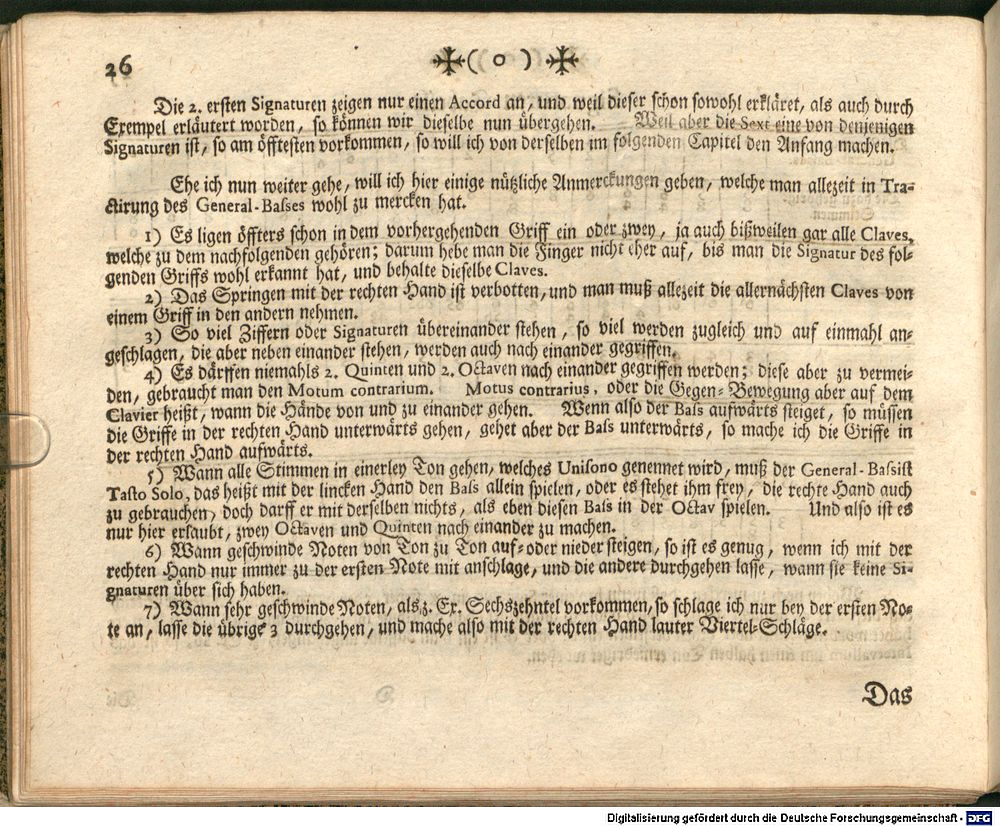 26 ✠( o )✠
Die 2. ersten Signaturen zeigen nur einen Accord an, und weil dieser schon sowohl erkläret, als auch durch
Exempel erläutert worden, so können wir dieselbe nun übergehen. Weil aber die Sext eine von denjenigen
Signaturen ist, so am öfftesten vorkommen, so will ich von derselben im folgenden Capitel den Anfang machen.
Ehe ich nun weiter gehe, will ich hier einige nützliche Anmerckungen geben, welche man allezeit in Tra-
ctirung des General-Basses wohl zu mercken hat.
1) Es ligen öffters schon in dem vorhergehenden Griff ein oder zwey, ja auch bißweilen gar alle Claves,
welche zu dem nachfolgenden gehören; darum hebe man die Finger nicht eher auf, bis man die Signatur des fol-
genden Griffs wohl erkannt hat, und behalte dieselbe Claves.
2) Das Springen mit der rechten Hand ist verbotten, und man muß allezeit die allernächsten Claves von
einem Griff in den andern nehmen.
3) So viel Ziffern oder Signaturen übereinander stehen, so viel werden zugleich und auf einmahl an-
geschlagen, die aber neben einander stehen, werden auch nach einander gegriffen.
4) Es därffen niemahls 2. Quinten und 2. Octaven nach einander gegriffen werden; diese aber zu vermei-
den, gebraucht man den Motum contrarium. Motus contrarius, oder die Gegen-Bewegung aber auf dem
Clavier heißt, wann die Hände von und zu einander gehen. Wenn also der Bass aufwärts steiget, so müssen
die Griffe in der rechten Hand unterwärts gehen, gehet aber der Bass unterwärts, so mache ich die Griffe in
der rechten Hand aufwärts.
5) Wann alle Stimmen in einerley Ton gehen, welches Unisono genennet wird, muß der General-Bassist
Tasto Solo, das heißt mit der lincken Hand den Bass allein spielen, oder es stehet ihm frey, die rechte Hand auch
zu gebrauchen, doch darff er mit derselben nichts, als eben diesen Bass in der Octav spielen. Und also ist es
nur hier erlaubt, zwey Octaven und Quinten nach einander zu machen.
6) Wann geschwinde Noten von Ton zu Ton auf- oder nieder steigen, so ist es genug, wenn ich mit der
rechten Hand nur immer zu der ersten Note mit anschlage, und die andere durchgehen lasse, wann sie keine Si-
gnaturen über sich haben.
7) Wann sehr geschwinde Noten, als z. Ex. Sechszehntel vorkommen, so schlage ich nur bey der ersten No-
te an, lasse die übrige 3 durchgehen, und mache also mit der rechten Hand lauter Viertel-Schläge.
Das
Digitalisierung gefördert durch die Deutsche Forschungsgemeinschaft - DFG